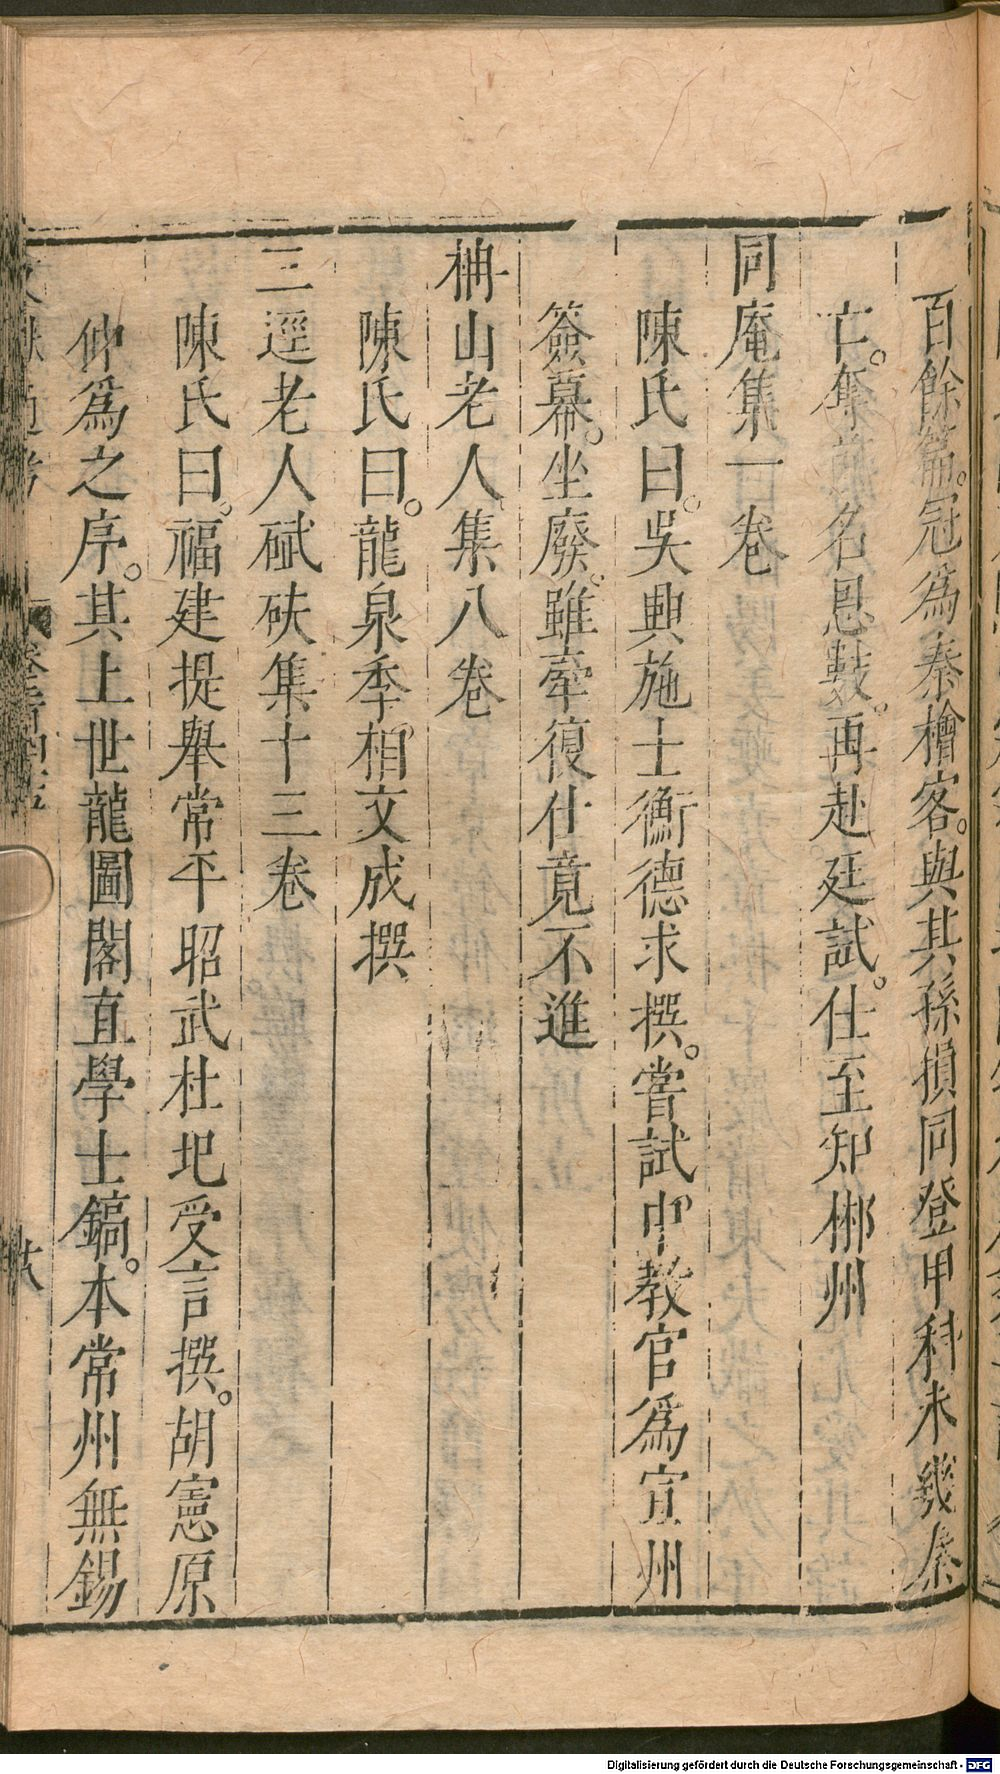 百餘篇。冠爲秦檜客。與其孫損同登甲科未幾秦
亡。奪前名恩數。再赴廷試。仕至知郴州
同庵集一卷
陳氏曰。吳興施士衡德求撰。嘗試中教官爲宣州
簽幕。坐廢。雖牽復仕竟不進
柟山老人集八卷
陳氏曰。龍泉季相文成撰
三逕老人砆集十三卷
陳氏曰。福建提舉常平昭武杜圯受言撰。胡憲原
仲爲之序。其上世龍圖閣直學士鎬。本常州無錫
文獻通考
Digitalisierung gefördert durch die Deutsche Forschungsgemeinschaft - DFG